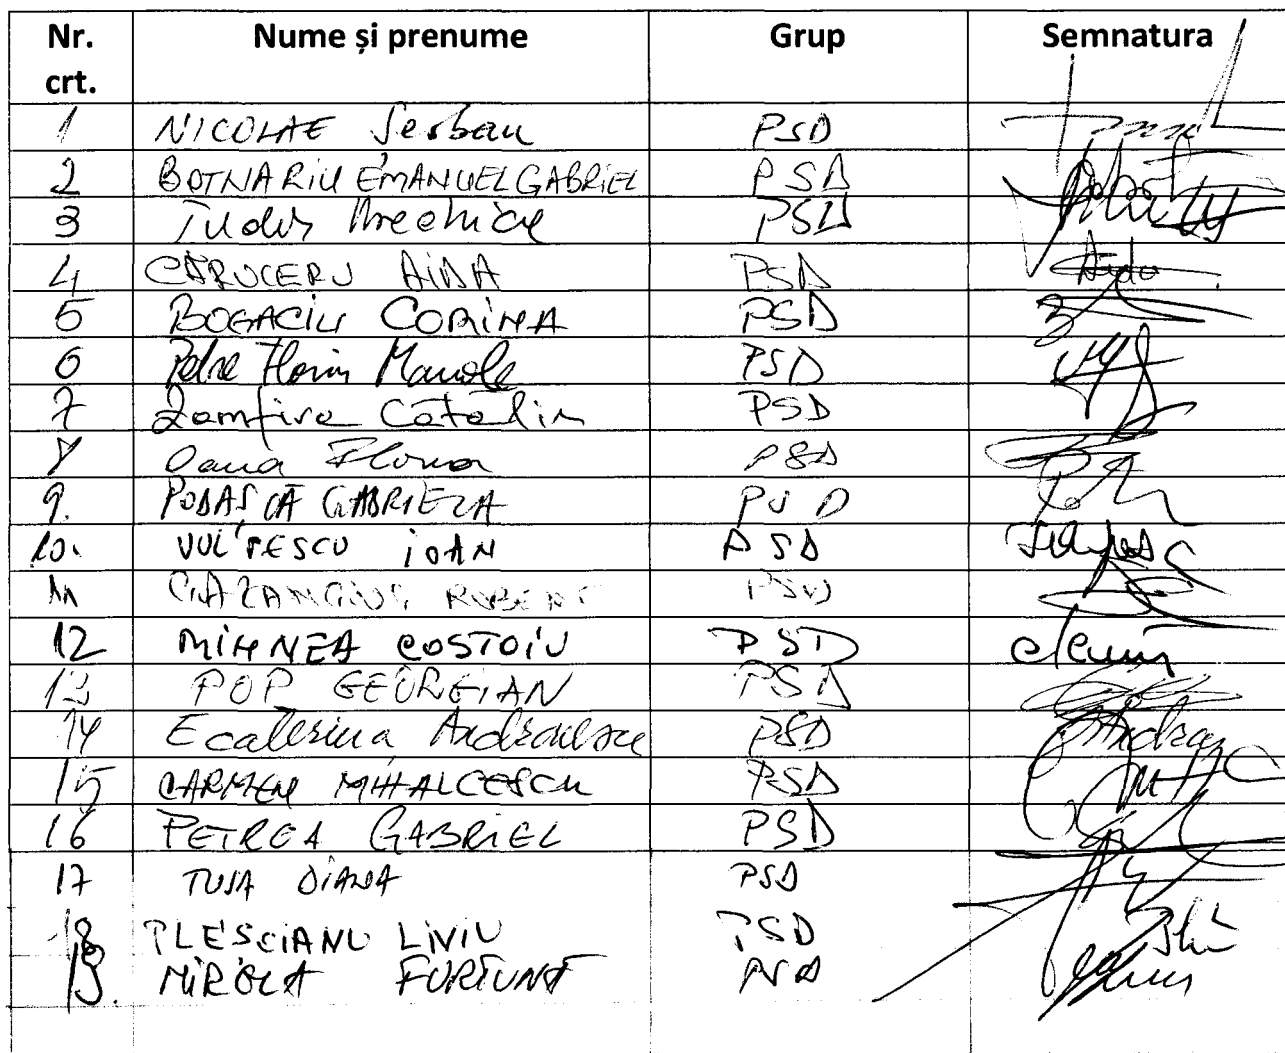 Nr. crt. Nume și prenume Grup Semnatura
1 NICOLAE Serban PSD
2 BOTNARIU EMANUEL GABRIEL PSD
3 Tudor PSD
4 CĂRUCERU AIDA PSD Aida
5 BOGACIU CORINA PSD
6 Petre Florin Manole PSD
7 Zamfira Cătălin PSD
8 Oana Florea PSD
9. PODAȘCĂ GABRIELA PSD
10. VULPESCU IOAN PSD
11 ROBERT PSD
12 MIHNEA COSTOIU PSD
13 POP GEORGIAN PSD
14 Ecaterina Andronescu PSD
15 CARMEN MIHALCESCU PSD
16 PETREA GABRIEL PSD
17 TUȘA DIANA PSD
18 PLESOIANU LIVIU PSD
19. FORTUNĂ PSD